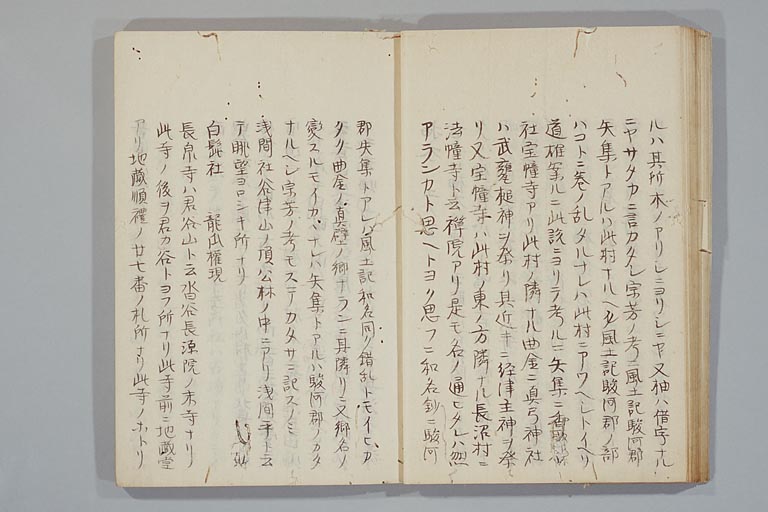 ルハ其所木ノアリシニヨリシニヤ又柚ハ借字ナル
ニヤサタカニ言カタシ宗芳ノ考ニ風土記駿河郡
矢集トアルハ此村ナルヘク風土記駿河郡ノ部
ハコトニ巻ノ乱タルナレハ此村ニアワヘシトイヘリ
道雄案ルニ此説ニヨリテ考ルニ矢集ニ
社宝幢寺アリ此村ノ隣ナル曲金ニ真弓神社
ハ武甕槌神ヲ祭リ其近キニ経津主神ヲ祭
リ又宝幢寺ハ此村ノ東ノ方隣ナル長沼村ニ
法幢寺ト云禅院アリ是モ名ノ通ヒタレハ然
アランカト思ヘトヨク思フニ和名鈔ニ駿河
郡矢集トアレハ風土記和名同ク錯乱トモイヒカ
タク曲金ノ真壁ノ郷ナランニ其隣リニ又郷名ノ
変スルモイカヽナレハ矢集トアルハ駿河郡ノカタ
ナルヘシ宗芳ノ考モステカタサニ記スノミ
浅間社谷津山ノ頂公林ノ中ニアリ浅間平ト云
テ眺望ヨロシキ所ナリ
白髭社 龍爪権現
長泉寺ハ君谷山ト云沓谷長源院ノ末寺ナリ
此寺ノ後ヲ君カ谷トヨフ所ナリ此寺前ニ地蔵堂
アリ地蔵順禮ノ廿七番ノ札所ナリ此寺ノホトリ